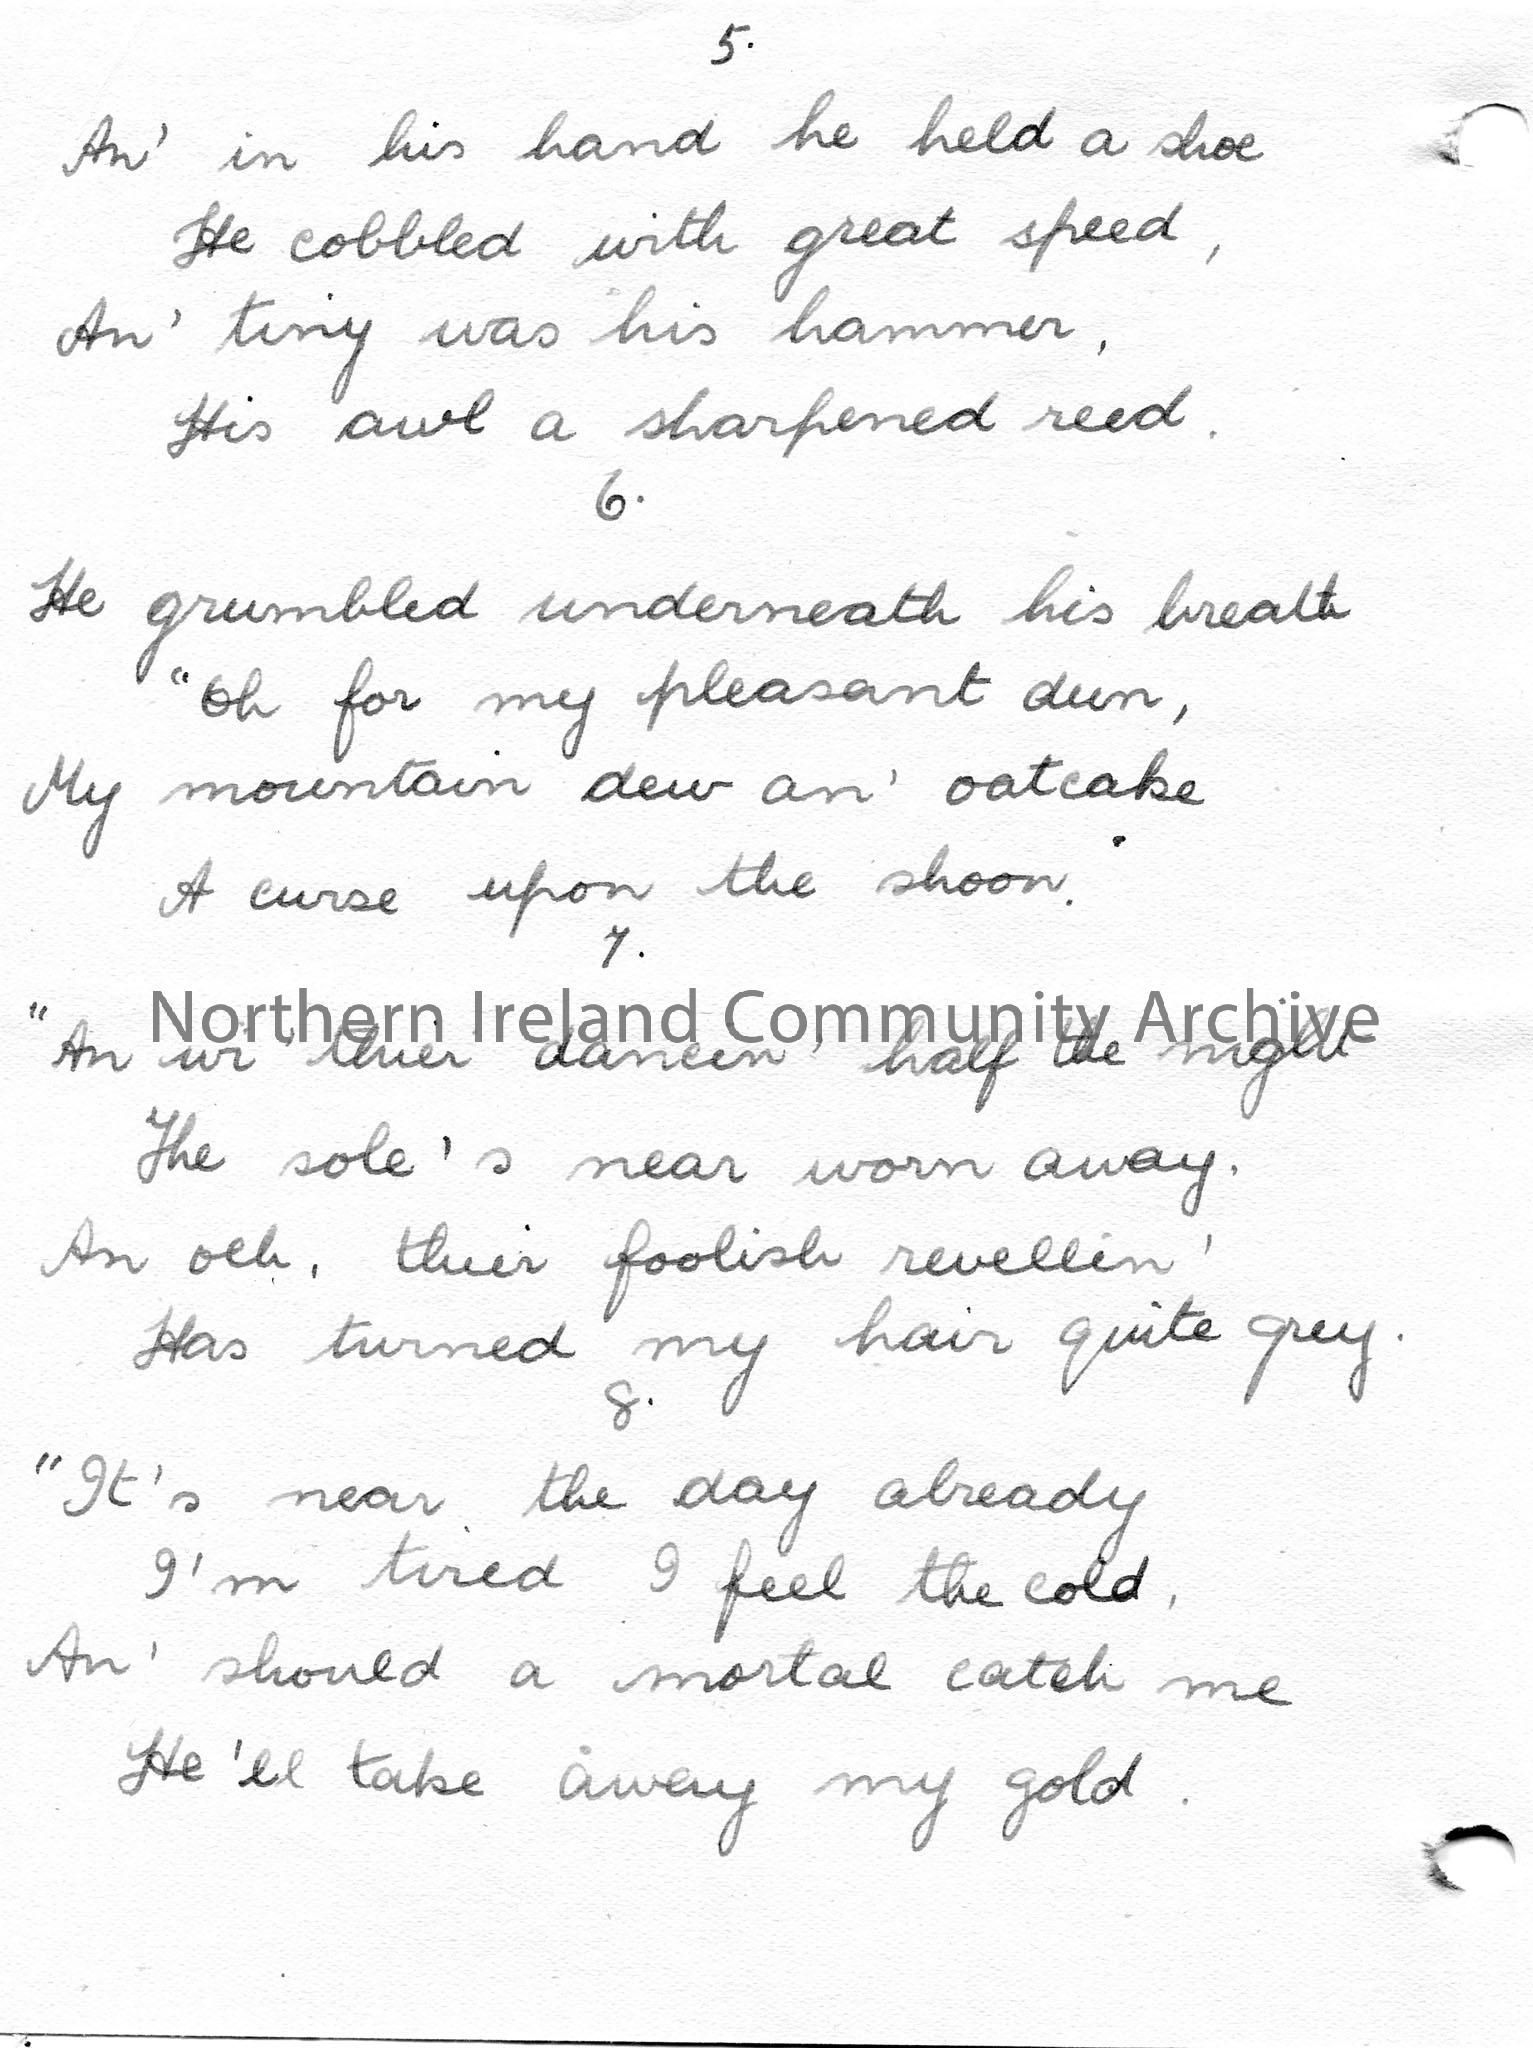 5.
An' in his hand he held a shoe
He cobbled with great speed,
An' tiny was his hammer,
His awl a sharpened reed.
6.
He grumbled underneath his breath
"Oh for my pleasant dun,
My mountain dew an' oatcake
A curse upon the shoon."
7.
Northern Ireland Community Archive
"An wi' their dancin' half the night
The sole's near worn away.
An och, their foolish revellin'
Has turned my hair quite grey.
8.
"It's near the day already
I'm tired I feel the cold,
An' should a mortal catch me
He'll take away my gold.